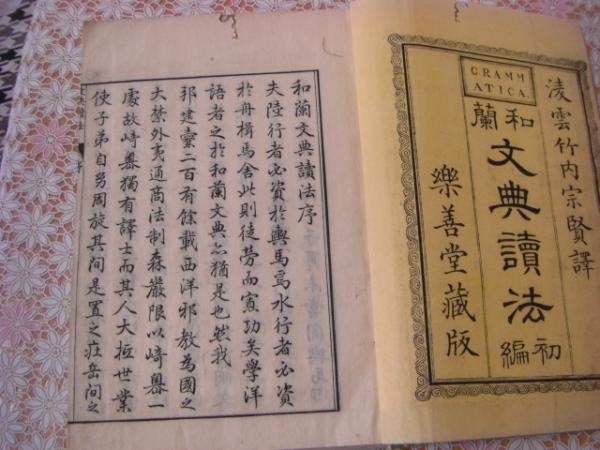 凌雲竹内宗賢譯
GRAMM
ATICA.
和蘭
文典讀法
初編
樂善堂藏版
和蘭文典讀法序
夫陸行者必資於輿馬爲水行者必資
於舟楫馬舍此則徒劳而寡功矣學洋
語者之於和蘭文典亦猶是也然我
邦建櫜二百有餘載西洋邪教為國之
大禁外夷通商法制森嚴限以崎嶴一
處故崎嶴獨有譯士而其人大抵世業
使子弟自㓜周旋其間是置之莊岳間之